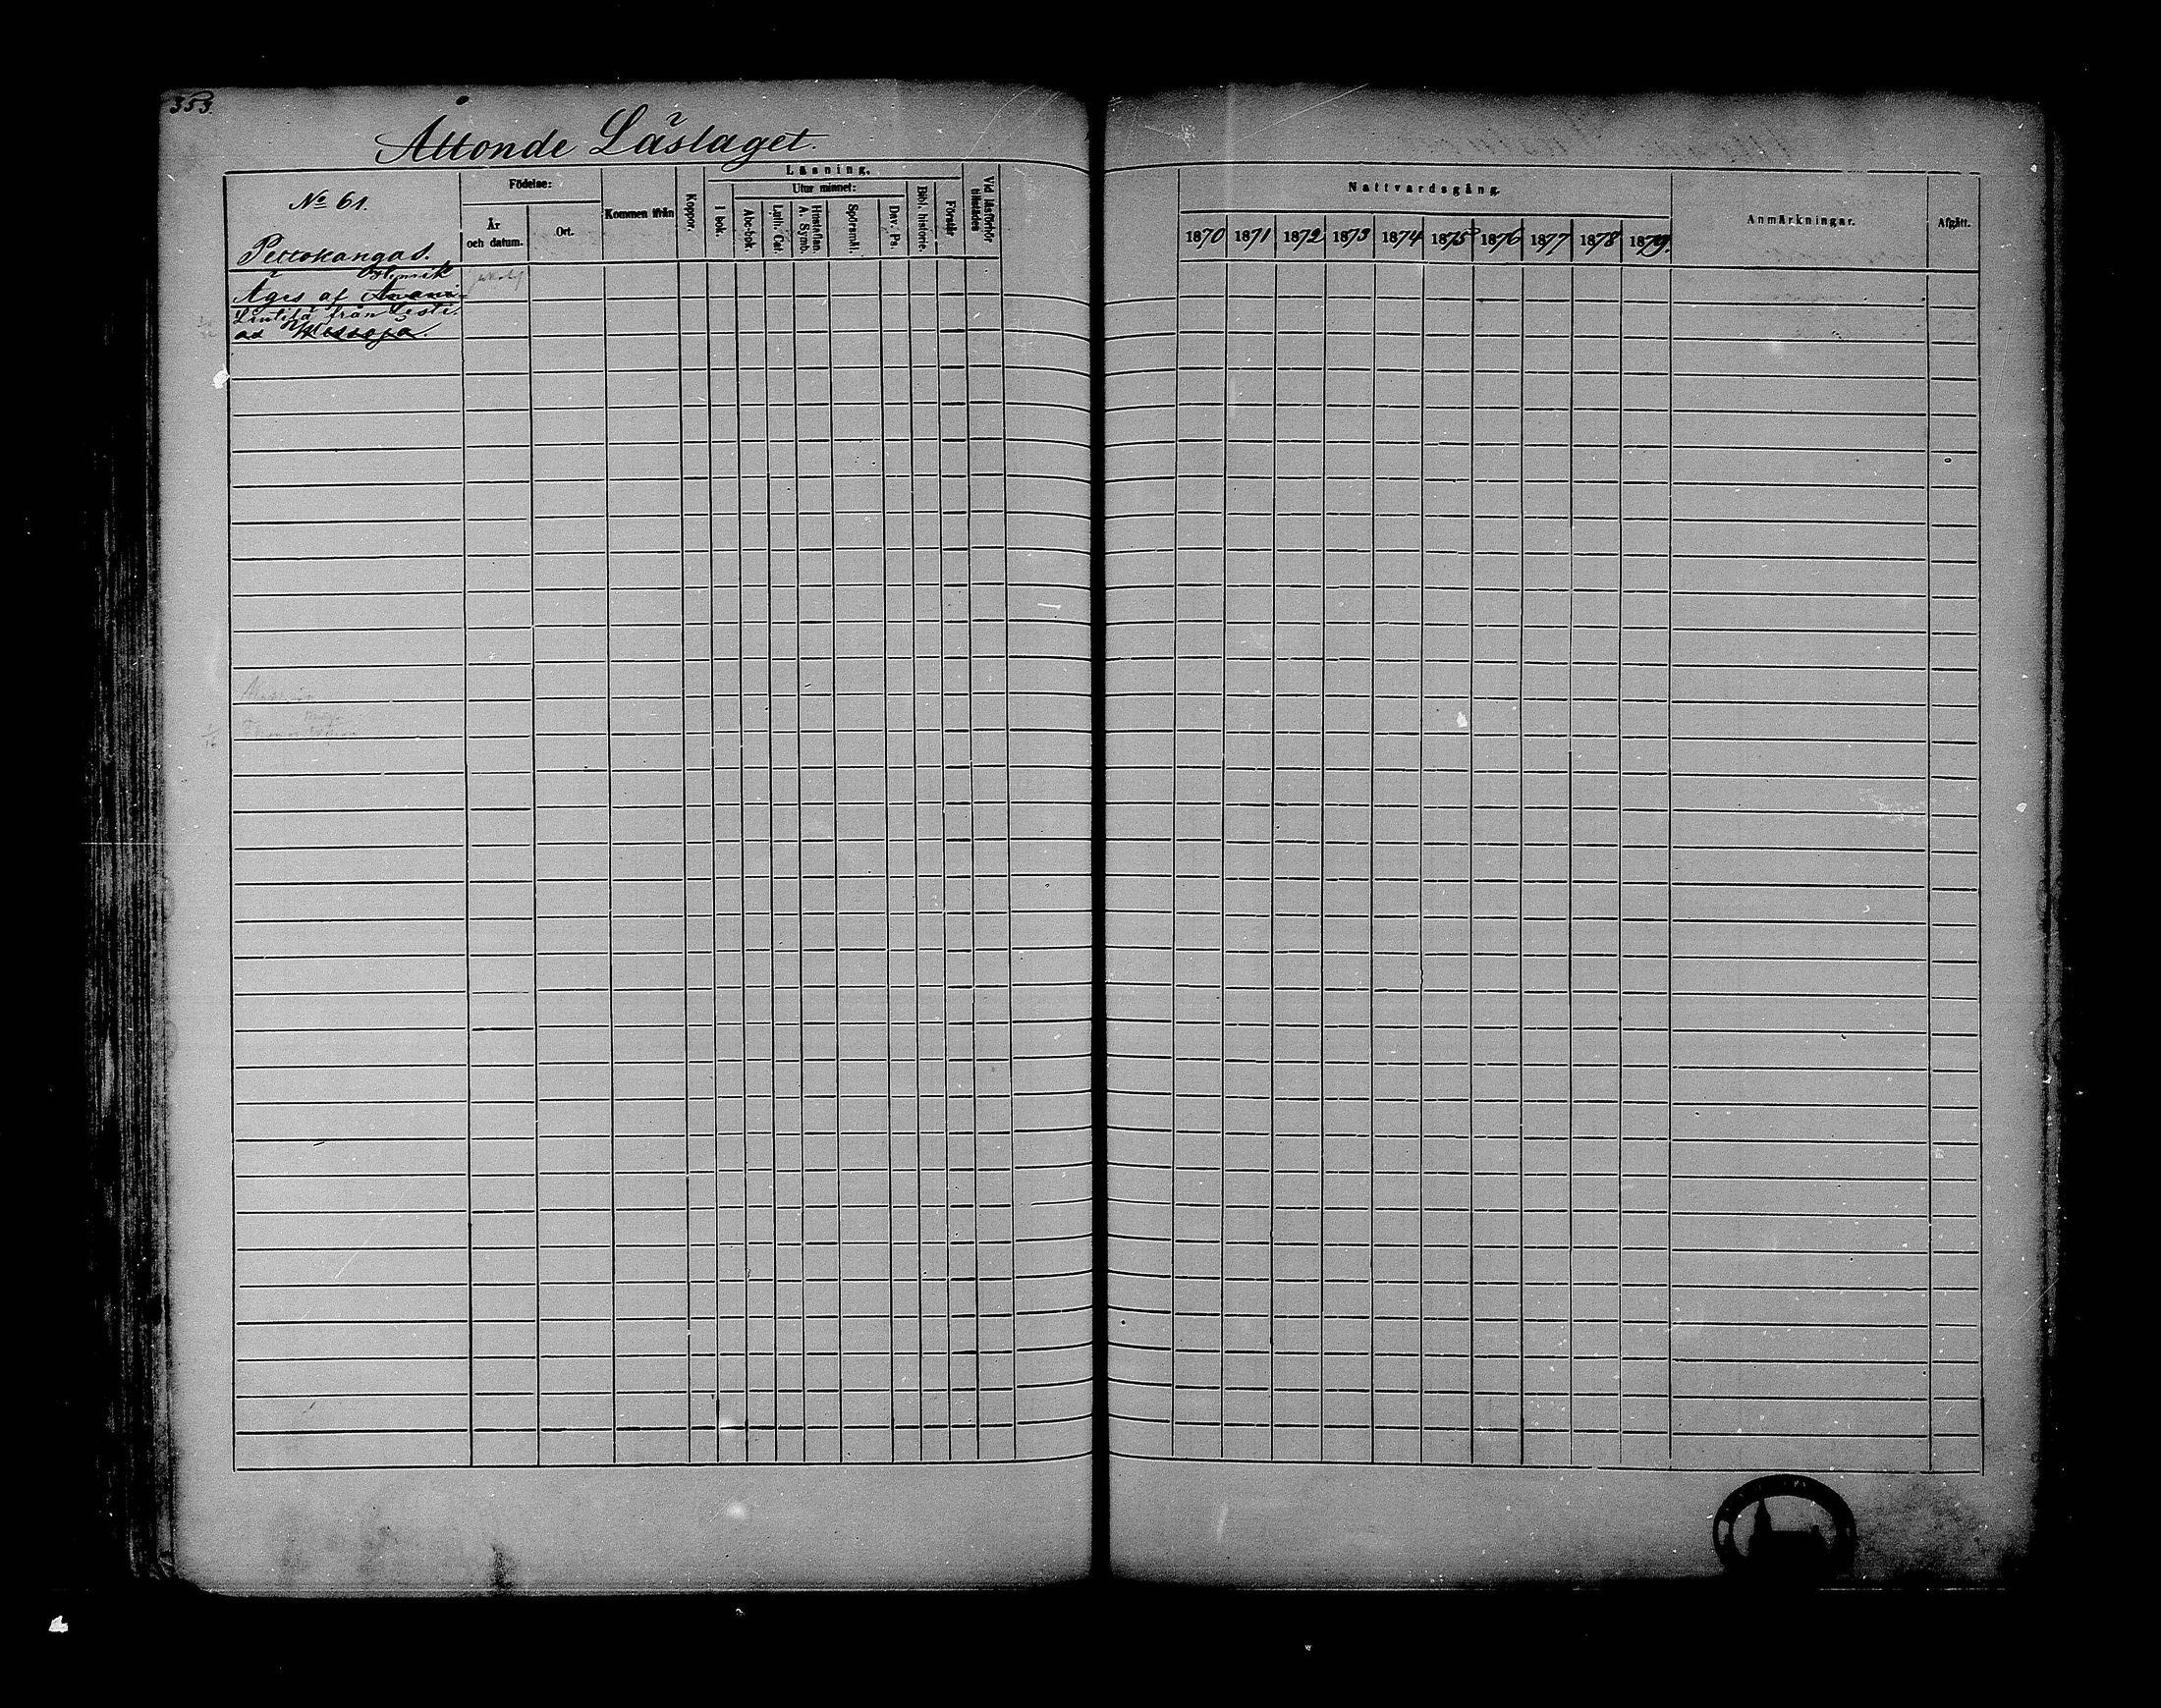 353.
Åttonde Läslaget.
No 61.
Perrokangas.
Födelse:
År
och datum.
Ort.
Kommen ifrån
Koppor.
Läsning.
I bok.
Utur minnet:
Abc-bok.
Luth. Cat.
Hustaflan
A. Symb.
Spörsmål.
Dav. Ps.
Bibl. historie.
Förstår
Vid läsförhör
tillstädes
Nattvardsgång.
1870 1871 1872 1873 1874 1875 1876 1877 1878 1879.
Anmärkningar.
Afgått.
Henrik
Äges af
från Lesti.